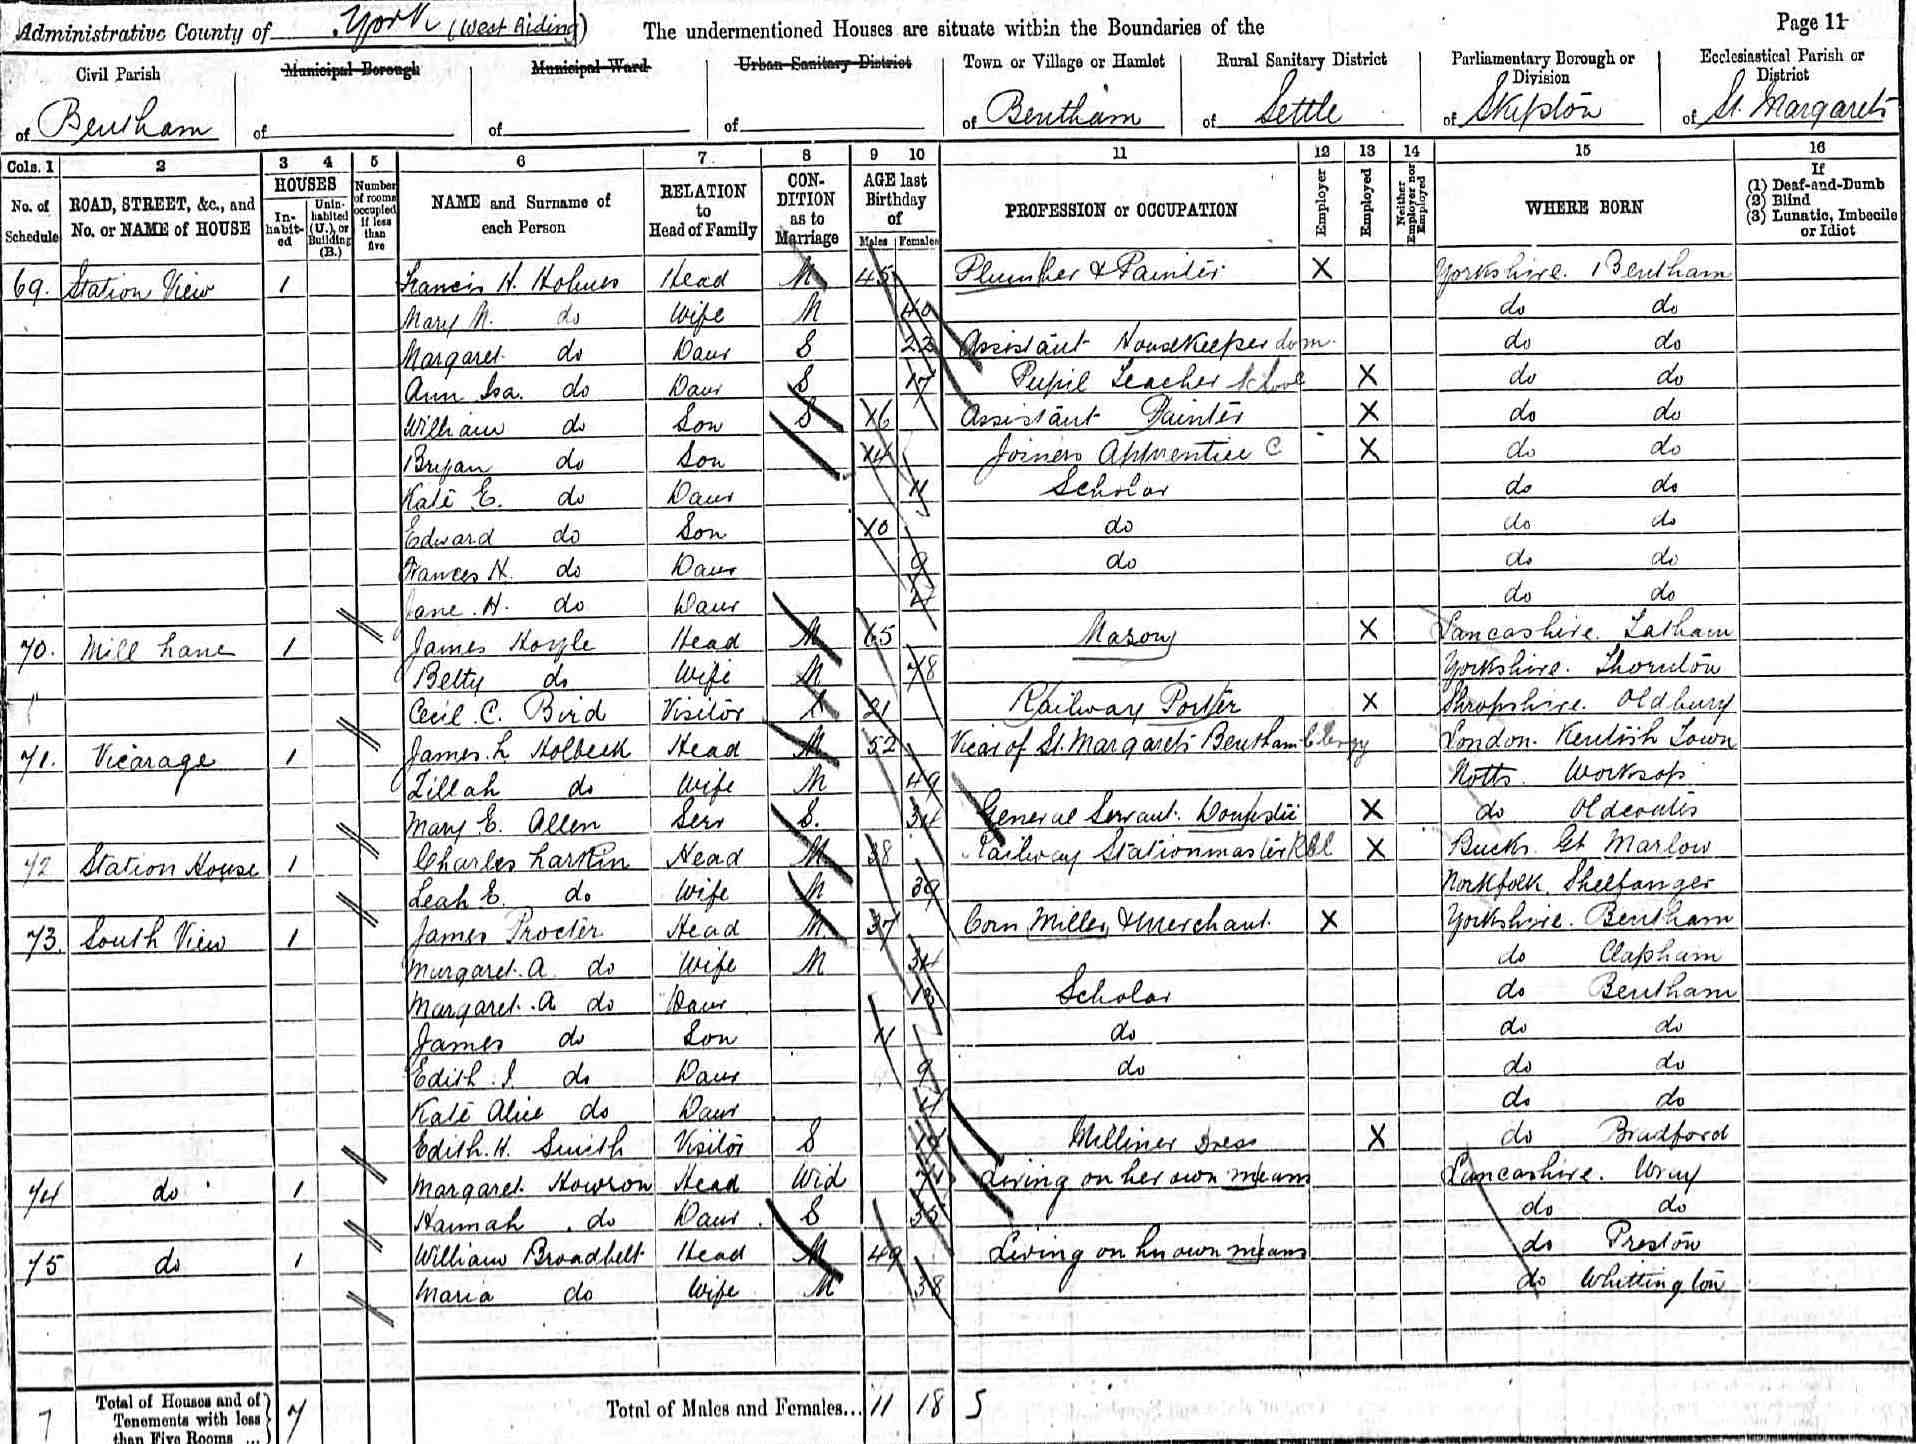 Administrative County of York (West Riding) The undermentioned Houses are situate within the Boundaries of the Page 11
Civil Parish Municipal Borough Municipal Ward Urban Sanitary District Town or Village or Hamlet Rural Sanitary District Parliamentary Borough or Division Ecclesiastical Parish or District
of Bentham of of of of Bentham of Settle of Skipton of St. Margaret's
Cols. 1 2 3 4 5 6 7 8 9 10 11 12 13 14 15 16
No. of Schedule ROAD, STREET, &c., and No. or NAME of HOUSE HOUSES In-habit-ed Unin-habited (U.), or Building (B.) Number of rooms occupied if less than five NAME and Surname of each Person RELATION to Head of Family CON-DITION as to Marriage AGE last Birthday of Males Females PROFESSION or OCCUPATION Employer Employed Neither Employer nor Employed WHERE BORN If (1) Deaf-and-Dumb (2) Blind (3) Lunatic, Imbecile or Idiot
69. Station View 1 Francis H. Holmes Head M 45 Plumber & Painter X Yorkshire. Bentham
Mary M. do Wife M 40 do do
Margaret do Daur S 22 Assistant Housekeeper dom. do do
Ann Isa. do Daur S 17 Pupil Teacher School X do do
William do Son S 16 Assistant Painter X do do
Bryan do Son 14 Joiners Apprentice C X do do
Kate E. do Daur 11 Scholar do do
Edward do Son 10 do do do
Frances H. do Daur 9 do do do
Jane H. do Daur 4 do do
70. Mill Lane 1 James Hoyle Head M 65 Mason X Lancashire. Latham
Betty do Wife M 78 Yorkshire. Thornton
Cecil C. Bird Visitor S 21 Railway Porter X Shropshire. Oldbury
71. Vicarage 1 James L Holbeck Head M 52 Vicar of St. Margaret's Bentham Clergy London. Kentish Town
Zillah do Wife M 49 Notts. Worksop
Mary E. Allen Serv S. 34 General Servant. Domestic X do Oldcoates
72 Station House 1 Charles Larkin Head M 38 Railway Stationmaster X Bucks. Gt Marlow
Leah E. do Wife M 39 Norkfolk. Shelfanger
73. South View 1 James Procter Head M 37 Corn Miller & Merchant X Yorkshire. Bentham
Margaret. A. do Wife M 34 do Clapham
Margaret. A do Daur 13 Scholar do Bentham
James do Son 11 do do do
Edith. I do Daur 9 do do do
Kate Alice do Daur 4 do do
Edith. H. Smith Visitor S 19 Milliner Dress X do Bradford
74 do 1 Margaret Howson Head Wid Living on her own means Lancashire. Wray
Hannah do Daur S 35 do do
75 do 1 William Broadbelt Head M 49 Living on his own means do Preston
Maria do Wife M 38 do Whittington
7 Total of Houses and of Tenements with less than Five Rooms ... 7 Total of Males and Females... 11 18 5